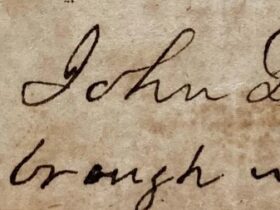 John
brough